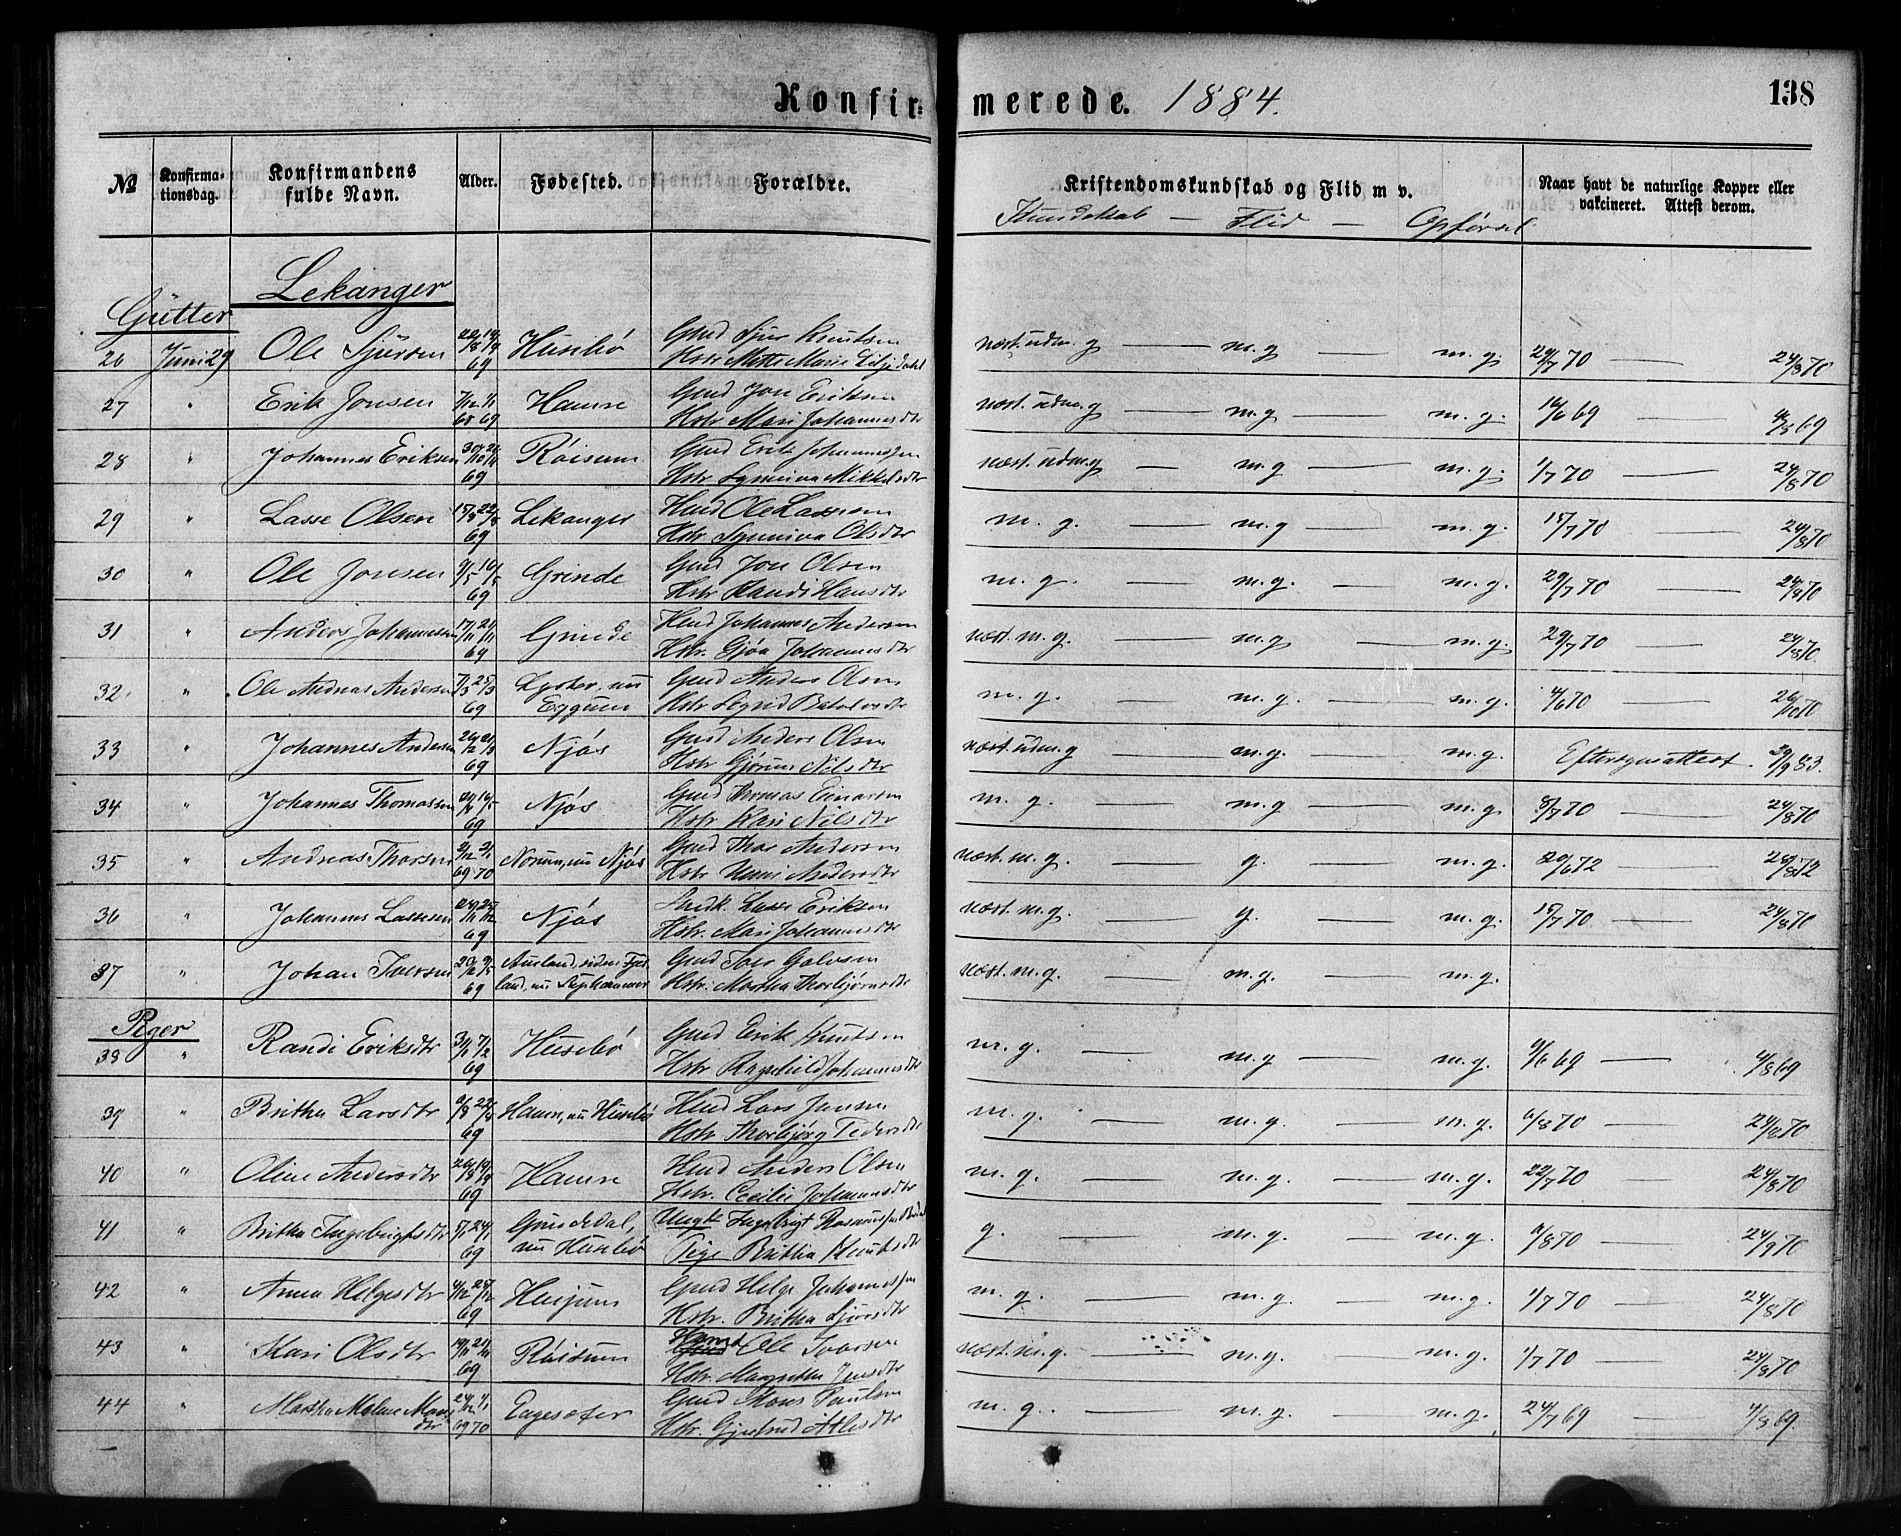 Konfirmerede. 1884. 138
№ Konfirmationsdag. Konfirmandens fulde Navn. Alder. Fødested. Forældre. Kristendomskundskab og Flid m v. Naar havt de naturlige Kopper eller vakcineret. Attest derom.
Kundskab — Flid — Opførsel
Lekanger
Gutter
26 Juni 29 Ole Sjursen 69 Husebø Gmd Sjur Knutsen
Hstr Mette Marie Liljedahl næst. udm. g — m. g — m. g. 29/7 70 — 24/8 70
27 " Erik Jonsen 7/12 68 69 Hamre Gmd Jon Eriksen
Hstr Mari Johannesdtr næst. udm. g — m. g — m. g. 16/6 69 — 4/8 69
28 " Johannes Eriksen 69 Röisum Gmd Erik Johannessen
Hstr Synneva Mikkelsdtr næst. udm. g — m. g — m. g. 1/7 70 — 24/8 70
29 " Lasse Olsen 15/8 22/8 69 Lekanger Hmd Ole Lassesen
Hstr Synneva Olsdtr m. g. — m. g — m. g. 15/7 70 — 24/8 70
30 " Ole Jonsen 16/5 69 Grinde Gmd Jon Olsen
Hstr Randi Hansdtr m. g. — m. g. — m. g. 29/7 70 — 24/8 70
31 " Anders Johannesen 17/11 21/11 69 Grinde Hmd Johannes Andersen
Hstr. Gjøa Johannesdtr næst. m. g. — m. g — m. g. 29/7 70 — 24/8 70
32. " Ole Andreas Andersen 7/3 25/3 69 Lyster, nu Eggum Gmd Anders Olsen
Hstr Sigrid m. g. — m. g. — m. g. 4/6 70 — 26/10 70
33 " Johannes Andersen 69 Njøs Gmd Anders Olsen
Hstr Gjøruu Nilsdtr næst. udm. g — m. g. — m. g. Eftersynsattest. 83.
34 " Johannes Thomassen 69 Njøs Gmd Thomas Einarsen
Hstr Kari Nilsdtr m. g. — m. g — m. g 8/7 70 — 24/8 70
35 " Andreas Thorsen 2/12 2/1 69 70 Norum, nu Njøs Gmd Thor Andersen
Hstr Unni Andersdtr næst. m. g. — g. — m. g. 20/6 72 — 28/8 72
36 " Johannes Lassesen 69 Njøs Lasse Eriksen
Hstr. Mari Johannesdtr næst. m. g. — g. — m. g. 15/7 70 — 24/8 70
37 " Johan Iversen 69 Aurland, siden Fjærland, nu Gmd Iver
Hstr. Martha Thorbjørnsdtr næst. m. g. — m. g. — m. g.
Piger
38 " Randi Eriksdtr 7/2 69 Husebø Gmd Erik Knutsen
Hstr Ragnhild Johannesdtr m. g. — m. g — m. g. 9/6 69 — 4/8 69
39 " Britha Larsdtr 22/8 69 Hamre, nu Husebø Hmd Lars Jensen
Hstr Thorbjørg Pedersdtr m. g. — m. g. — m. g. 6/8 70 — 24/8 70
40 " Oline Andersdtr 69 Hamre Hmd Anders Olsen
Hstr. Cecilie Johannesdtr m. g. — m. g. — m. g. 22/7 70 — 24/8 70
41 " Britha Ingebrigtsdtr 5/1 24/1 69 nu Husebø Ungk Ingebrigt
Pige Britha Knutsdtr g. — m. g. — m. g. 6/8 70 — 24/9 70
42 " Anna Helgesdtr 69 Gmd Helge Johannessen
Hstr. Britha Sjursdtr m. g. — m. g. — m. g. 1/7 70 — 24/8 70
43 " Kari Olsdtr 69 Röisum Hmd Ole Ivarsen
Hstr. Margrethe Jensdtr næst. m. g. — m. g. — m. g. 1/7 70 — 24/8 70
44 " Martha Malene Monsdtr 69 70 Engesæter Gmd Mons Paulsen
Hstr. Gjertrud Atlesdtr m. g. — m. g. — m. g. 24/7 69 — 4/8 69.